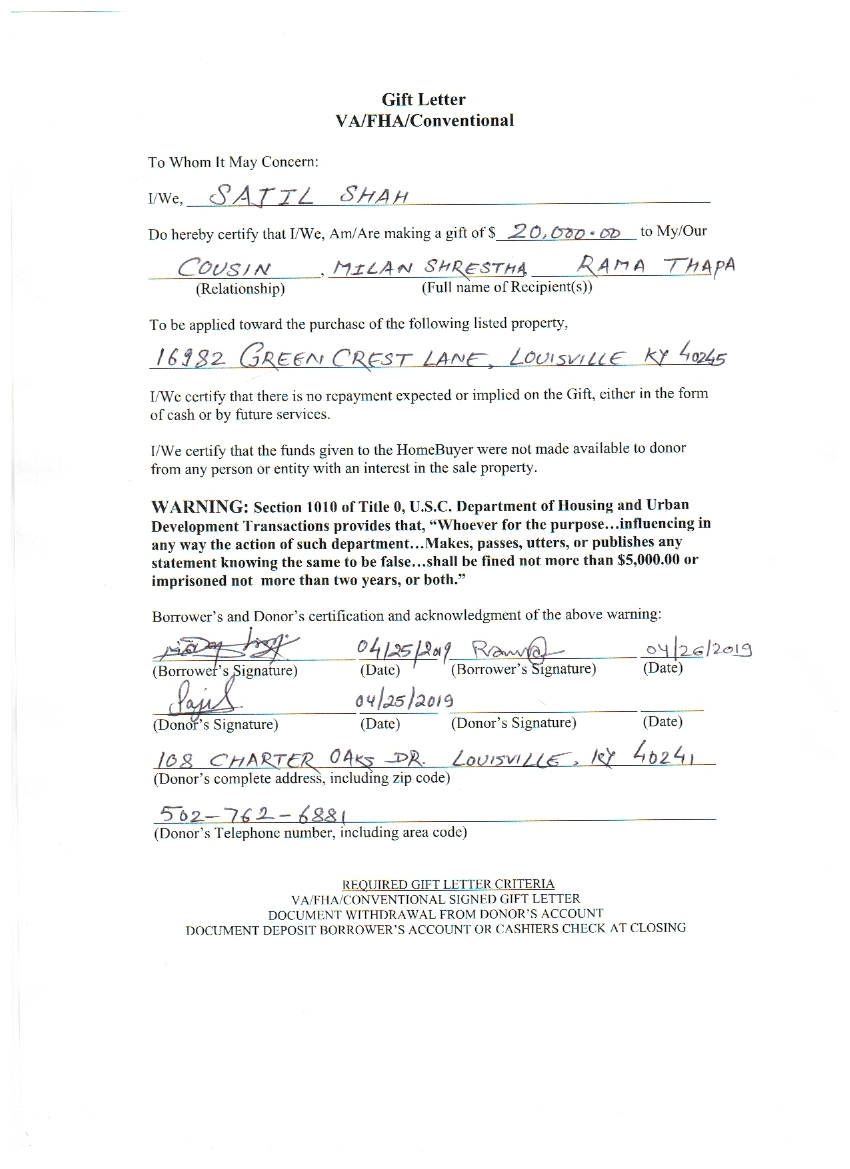 Gift Letter
VA/FHA/Conventional
To Whom It May Concern:
I/We, SATIL SHAH
Do hereby certify that I/We, Am/Are making a gift of $ 20,000.00 to My/Our
COUSIN , MILAN SHRESTHA RAMA THAPA
(Relationship) (Full name of Recipient(s))
To be applied toward the purchase of the following listed property,
16982 GREEN CREST LANE, LOUISVILLE KY 40245
I/We certify that there is no repayment expected or implied on the Gift, either in the form
of cash or by future services.
I/We certify that the funds given to the HomeBuyer were not made available to donor
from any person or entity with an interest in the sale property.
WARNING: Section 1010 of Title 0, U.S.C. Department of Housing and Urban
Development Transactions provides that, “Whoever for the purpose…influencing in
any way the action of such department…Makes, passes, utters, or publishes any
statement knowing the same to be false…shall be fined not more than $5,000.00 or
imprisoned not more than two years, or both.”
Borrower’s and Donor’s certification and acknowledgment of the above warning:
04/25/2019 04/26/2019
(Borrower’s Signature) (Date) (Borrower’s Signature) (Date)
04/25/2019
(Donor’s Signature) (Date) (Donor’s Signature) (Date)
108 CHARTER OAKS DR. LOUISVILLE, KY 40241
(Donor’s complete address, including zip code)
502-762-6881
(Donor’s Telephone number, including area code)
REQUIRED GIFT LETTER CRITERIA
VA/FHA/CONVENTIONAL SIGNED GIFT LETTER
DOCUMENT WITHDRAWAL FROM DONOR’S ACCOUNT
DOCUMENT DEPOSIT BORROWER’S ACCOUNT OR CASHIERS CHECK AT CLOSING